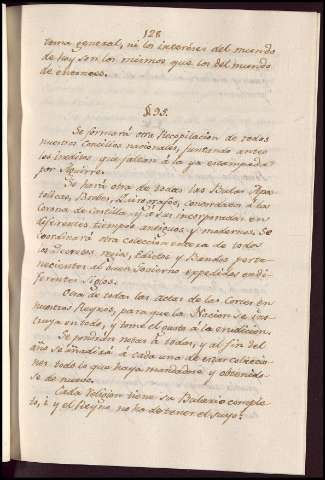 128
toma general, ni los intereses del mundo
de hoy son los mismos que los del mundo
de entonces.
§ 95.
Se formará otra Recopilacion de todos
nuestros Concilios nacionales, juntando antes
los ineditos que faltan á la ya estampada
por Aguirre.
Se hará otra de todas las Bulas Apos
tolicas, Breves, concedidas á la
Corona de Castilla, y á sus incorporadas en
diferentes tiempos antiguos y modernos. Se
coordinará otra coleccion entera de todos
los Decretos, Edictos y Bandos perte-
necientes al buen Govierno expedidos en di-
ferentes siglos.
Otra de todas las actas de las Cortes en
nuestros Reynos, para que la Nacion se ins-
truya en todo, y tome el gusto á la erudicion.
Se pondrán notas á todos, y al fin del
año se añadirá á cada una de estas coleccio-
nes todo lo que haya mandadose y obtenido-
se de nuevo.
Cada Religion tiene su Bulario comple-
to, i. y el Reyno no ha de tener el suyo?